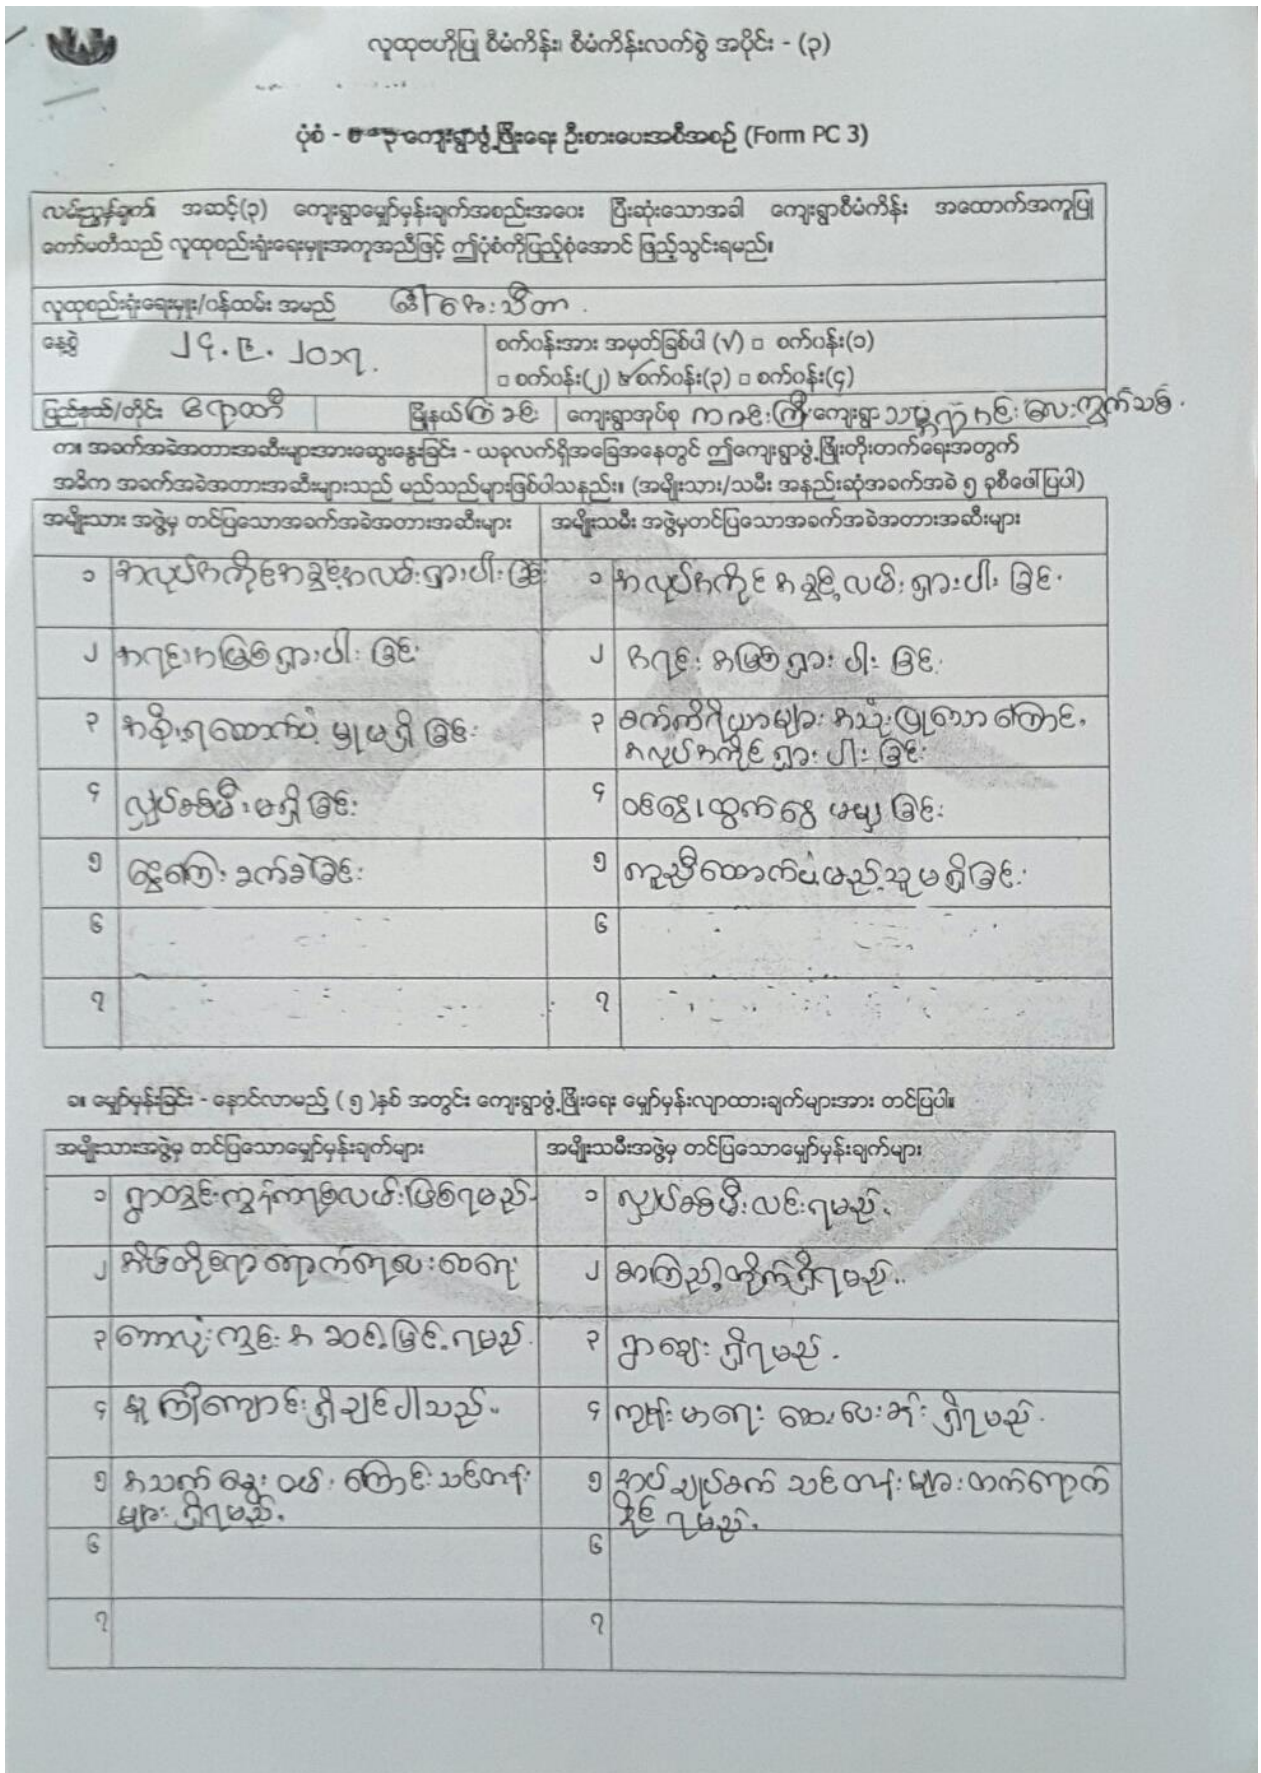 လူထုဗဟိုပြု စီမံကိန်း၊ စီမံကိန်းလက်စွဲ အပိုင်း - (၃)
ပုံစံ - ကျေးရွာဖွံ့ဖြိုးရေး ဦးစားပေးအစီအစဉ် (Form PC 3)
လမ်းညွှန်ချက်၊ အဆင့်(၃) ကျေးရွာမျှော်မှန်းချက်အစည်းအဝေး ပြီးဆုံးသောအခါ ကျေးရွာစီမံကိန်း အထောက်အကူပြု
ကော်မတီသည် လူထုစည်းရုံးရေးမှူးအကူအညီဖြင့် ဤပုံစံကိုပြည့်စုံအောင် ဖြည့်သွင်းရမည်။
လူထုစည်းရုံးရေးမှူး/ဝန်ထမ်း အမည် ဒေါ်အေးသီတာ.
နေ့စွဲ ၂၄.၉.၂၀၁၇. စက်ဝန်းအား အမှတ်ခြစ်ပါ (√) □ စက်ဝန်း(၁)
□ စက်ဝန်း(၂) ☑ စက်ဝန်း(၃) □ စက်ဝန်း(၄)
ပြည်နယ်/တိုင်း ဧရာဝတီ မြို့နယ် ကြံခင်း ကျေးရွာအုပ်စု ကျေးရွာ လေးကွက်သစ်.
က။ အခက်အခဲအတားအဆီးများအားဆွေးနွေးခြင်း - ယခုလက်ရှိအခြေအနေတွင် ဤကျေးရွာဖွံ့ဖြိုးတိုးတက်ရေးအတွက်
အဓိက အခက်အခဲအတားအဆီးများသည် မည်သည်များဖြစ်ပါသနည်း။ (အမျိုးသား/သမီး အနည်းဆုံးအခက်အခဲ ၅ ခုစီဖော်ပြပါ)
အမျိုးသား အဖွဲ့မှ တင်ပြသောအခက်အခဲအတားအဆီးများ အမျိုးသမီး အဖွဲ့မှတင်ပြသောအခက်အခဲအတားအဆီးများ
၁ အလုပ်အကိုင်အခွင့်အလမ်းရှားပါးခြင်း ၁ အလုပ်အကိုင်အခွင့်လမ်းရှားပါးခြင်း.
၂ အရင်းအမြစ်ရှားပါးခြင်း ၂ အရင်းအမြစ်ရှားပါးခြင်း.
၃ အစိုးရထောက်ပံ့မှုမရှိခြင်း ၃ စက်ကိရိယာများအသုံးပြုသောကြောင့်
အလုပ်အကိုင်ရှားပါးခြင်း
၄ လျှပ်စစ်မီးမရှိခြင်း ၄ ဝင်ငွေ၊ထွက်ငွေမမျှခြင်း
၅ ငွေကြေးခက်ခဲခြင်း ၅ ကူညီထောက်ပံ့မည့်သူမရှိခြင်း
၆ ၆
၇ ၇
ခ။ မျှော်မှန်းခြင်း - နောင်လာမည့် (၅)နှစ် အတွင်း ကျေးရွာဖွံ့ဖြိုးရေး မျှော်မှန်းလျာထားချက်များအား တင်ပြပါ။
အမျိုးသားအဖွဲ့မှ တင်ပြသောမျှော်မှန်းချက်များ အမျိုးသမီးအဖွဲ့မှ တင်ပြသောမျှော်မှန်းချက်များ
၁ ရွာတွင်းကွန်ကရစ်လမ်းဖြစ်ရမည်. ၁ လျှပ်စစ်မီးလင်းရမည်.
၂ အိမ်တိုင်ရာရောက်ရေပေးဝေရေး ၂ စာကြည့်တိုက်ရှိရမည်..
၃ ဘောလုံးကွင်းအဆင့်မြှင့်ရမည်. ၃ ရွာဈေးရှိရမည်.
၄ မူကြိုကျောင်းရှိချင်ပါသည်.. ၄ ကျန်းမာရေးဆေးပေးခန်းရှိရမည်.
၅ အသက်မွေးဝမ်းကြောင်းသင်တန်း ၅ အပ်ချုပ်စက်သင်တန်းများတက်ရောက်
များရှိရမည်. နိုင်ရမည်.
၆ ၆
၇ ၇